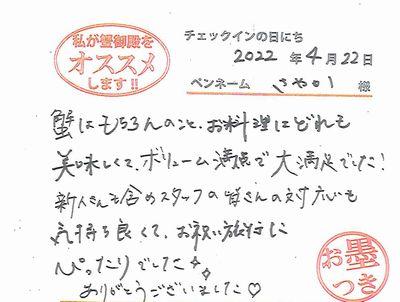 私が蟹御殿を
オススメ
します!!
チェックインの日にち
2022 年 4 月 22 日
ペンネーム さやか 様
蟹はもちろんのこと、お料理はどれも
美味しくて、ボリューム満点で大満足でした!
新人さんも含めスタッフの皆さんの対応も
気持ち良くて、お祝い旅行に
ぴったりでした✨
ありがとうございました♡
お墨
つき